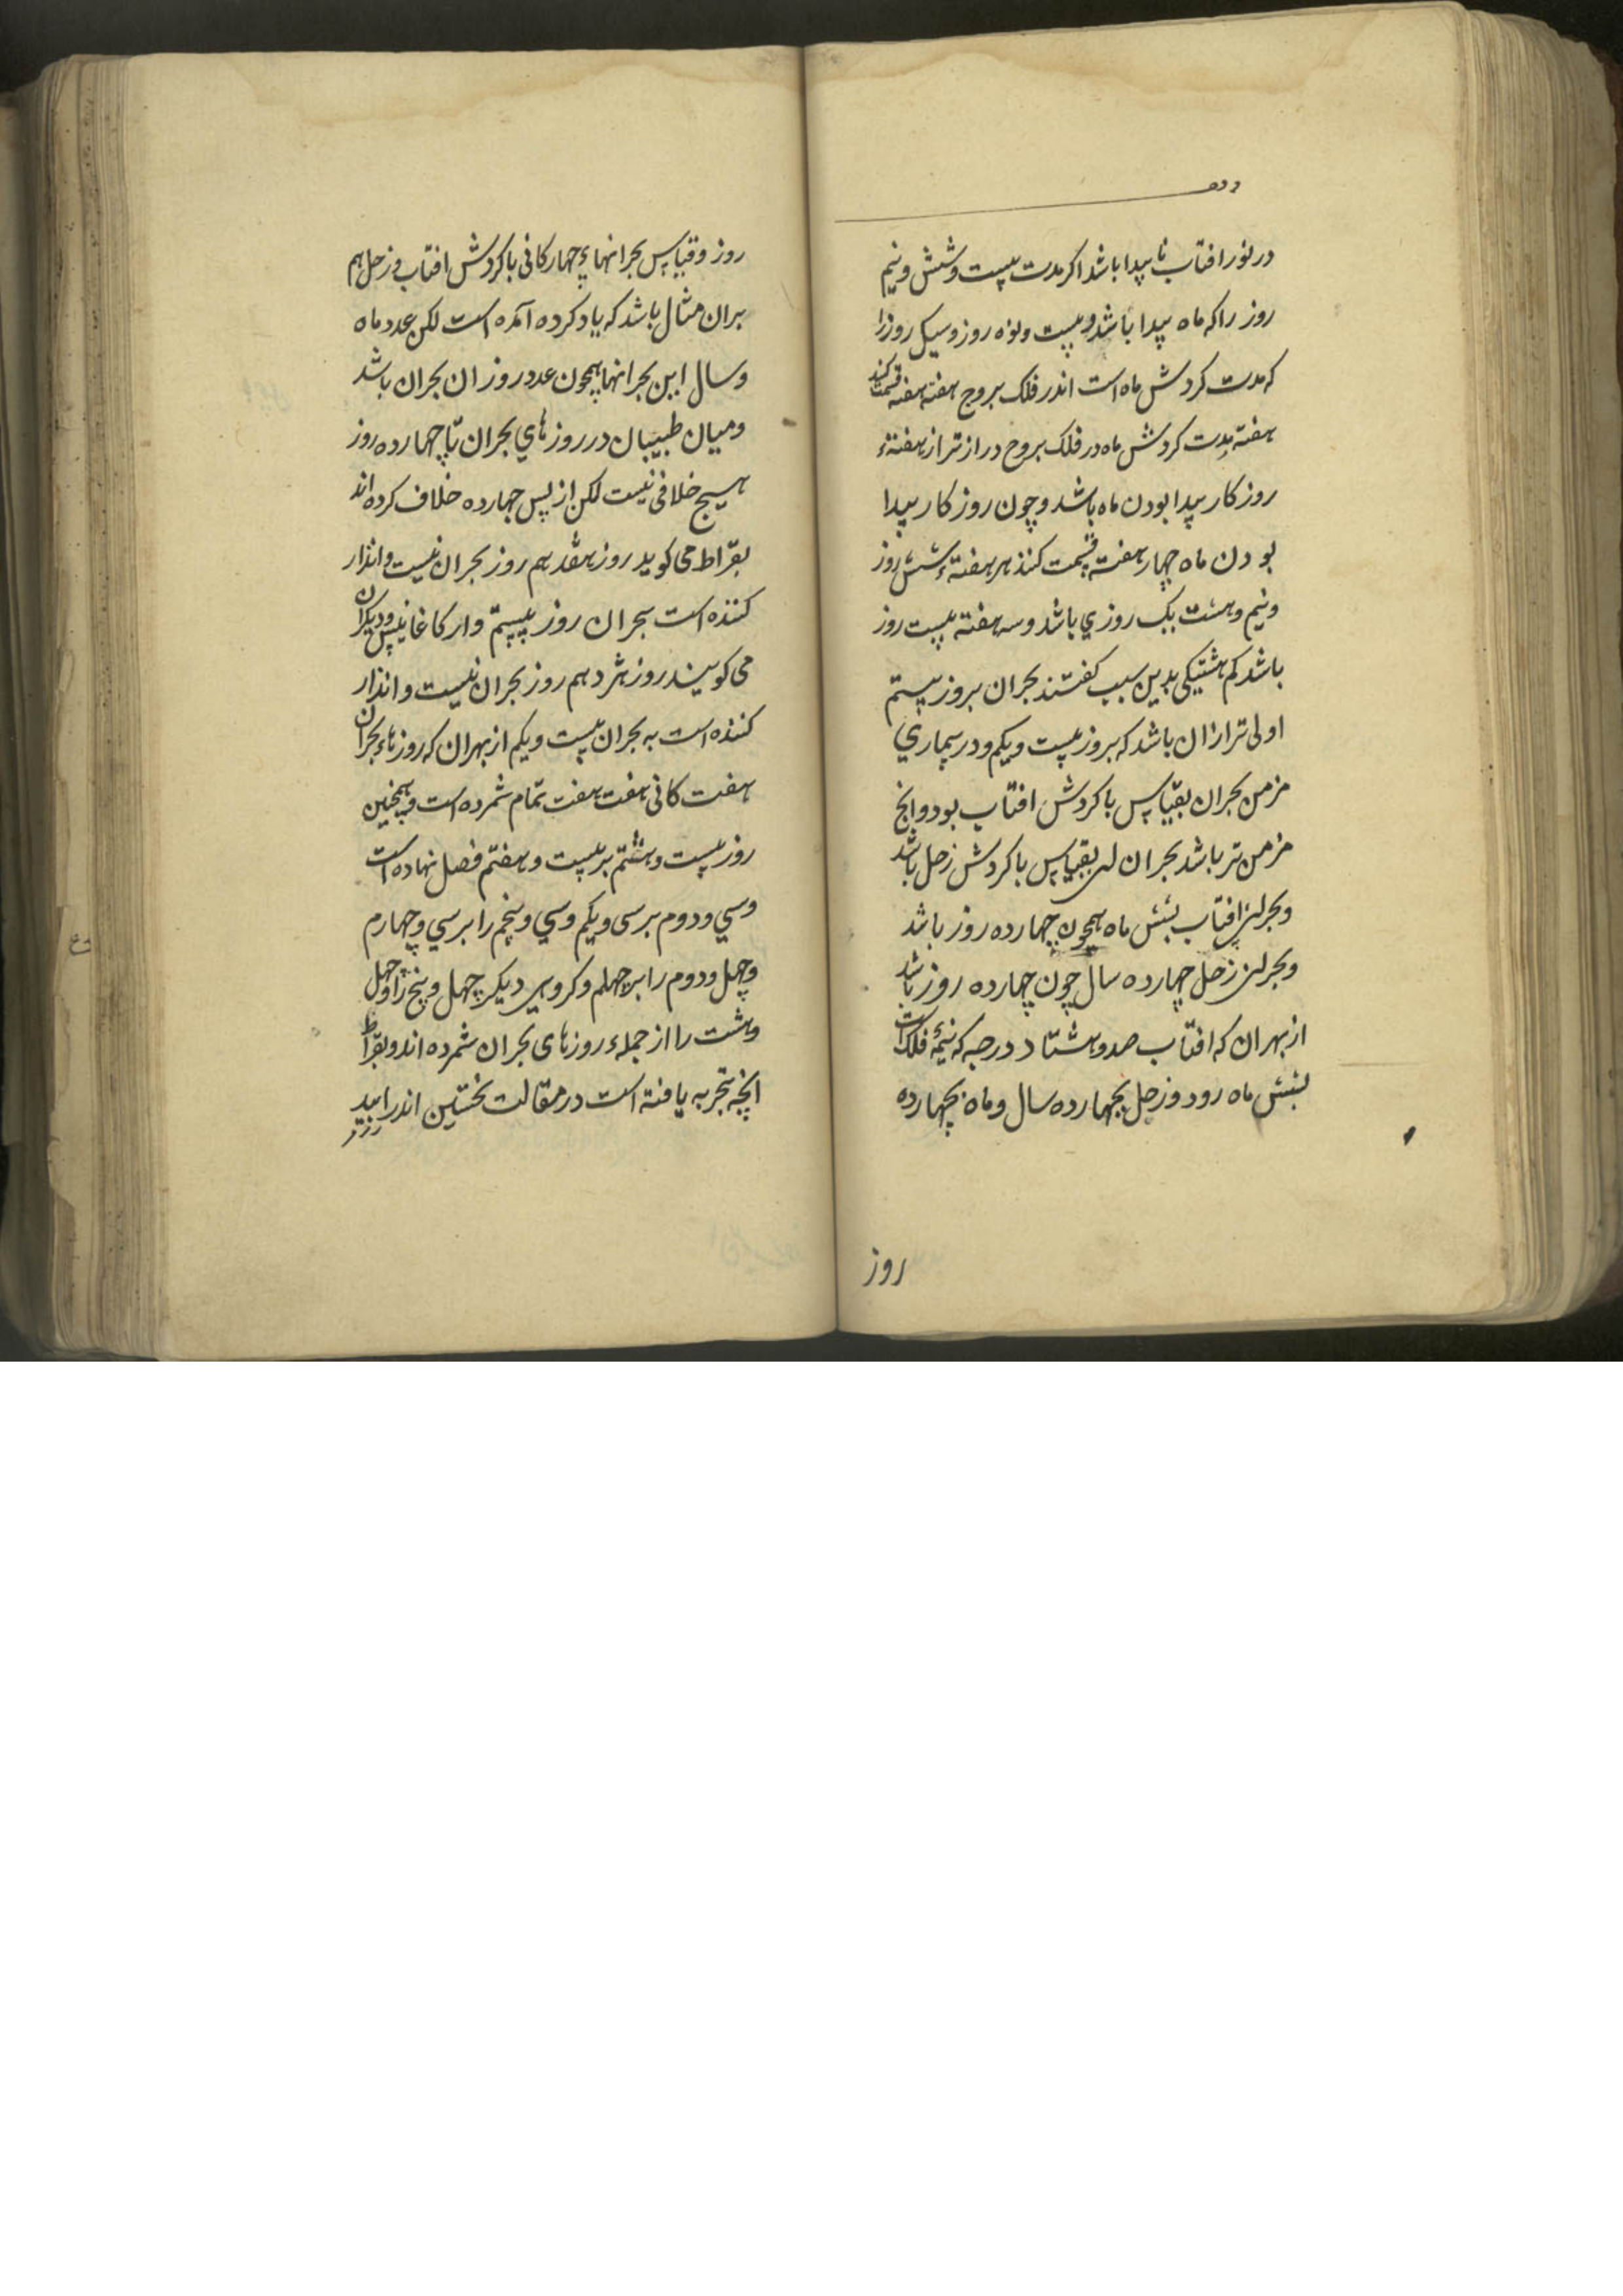 در نور افتاب نا پیدا باشد اکر مدت بیست و شش و نیم
روز را که ماه پیدا باشد و بیست و نوه روز و سیک روز را
که مدت کردش ماه است اندر فلک بروج هفته هفته قسمت کنند
هفته مدت کردش ماه در فلک بروج دراز تر از هفتهٔ
روزکار پیدا بودن ماه باشد و چون روزکار پیدا
بودن ماه چهار هفته قسمت کنند هر هفتهٔ شش روز
و نیم و هشت یک روزی باشد و سه هفته بیست روز
باشد کم هشتیکی بدین سبب کفتند بحران بروز بیستم
اولی تر ازان باشد که بروز بیست و یکم و در بیماری
مزمن بحران بقیاس با کردش افتاب بود وانچ
مزمن تر باشد بحران ان بقیاس با کردش زحل باشد
و بحران افتاب بشش ماه همچون چهارده روز باشد
و بحران زحل چهارده سال چون چهارده روز باشد
از بهران که افتاب صد و هشتاد درجه که نیمهٔ فلک است
بشش ماه رود و زحل بچهارده سال و ماه بچهارده
روز
روز و قیاس بحرانهاء چهارکانی با کردش افتاب و زحل هم
بران مثال باشد که یاد کرده آمده است لکن عدد ماه
و سال این بحرانها همچون عدد روز ان بحران باشد
و میان طبیبان در روزهای بحران تا چهارده روز
هیچ خلافی نیست لکن از پس چهارده خلاف کرده اند
بقراط می کوید روز هفدهم روز بحران نیست و انذار
کننده است بحران روز بیستم و ارکاغانیس و دیکران
می کویند روز هژدهم روز بحران نیست و انذار
کننده است به بحران بیست و یکم از بهران که روزهاء بحران
هفت کانی هفت هفت تمام شمرده است و همچنین
روز بیست و هشتم بر بیست و هفتم فصل نهاده است
و سی و دوم بر سی و یکم و سی و پنجم را بر سی و چهارم
و چهل و دوم را بر چهلم و کروهی دیکر چهل و پنج را و چهل
و هشت را از جملهء روزهای بحران شمرده اند و بقراط
انچه تجربه یافته است در مقالت نخستین اندر ابید